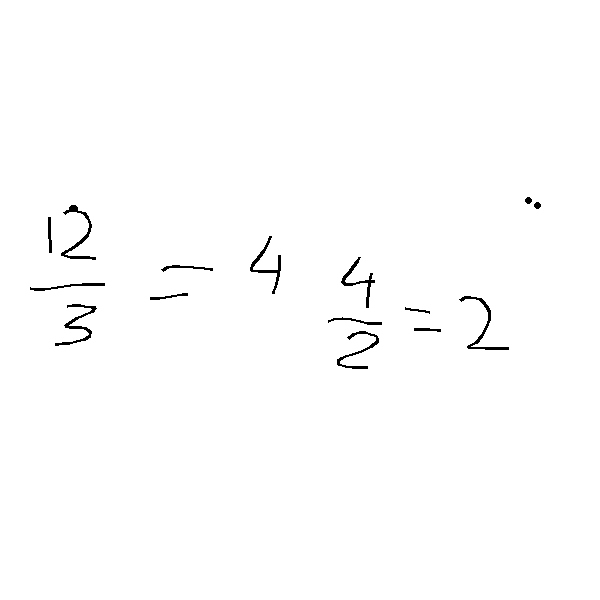 12/3 = 4 4/2 = 2